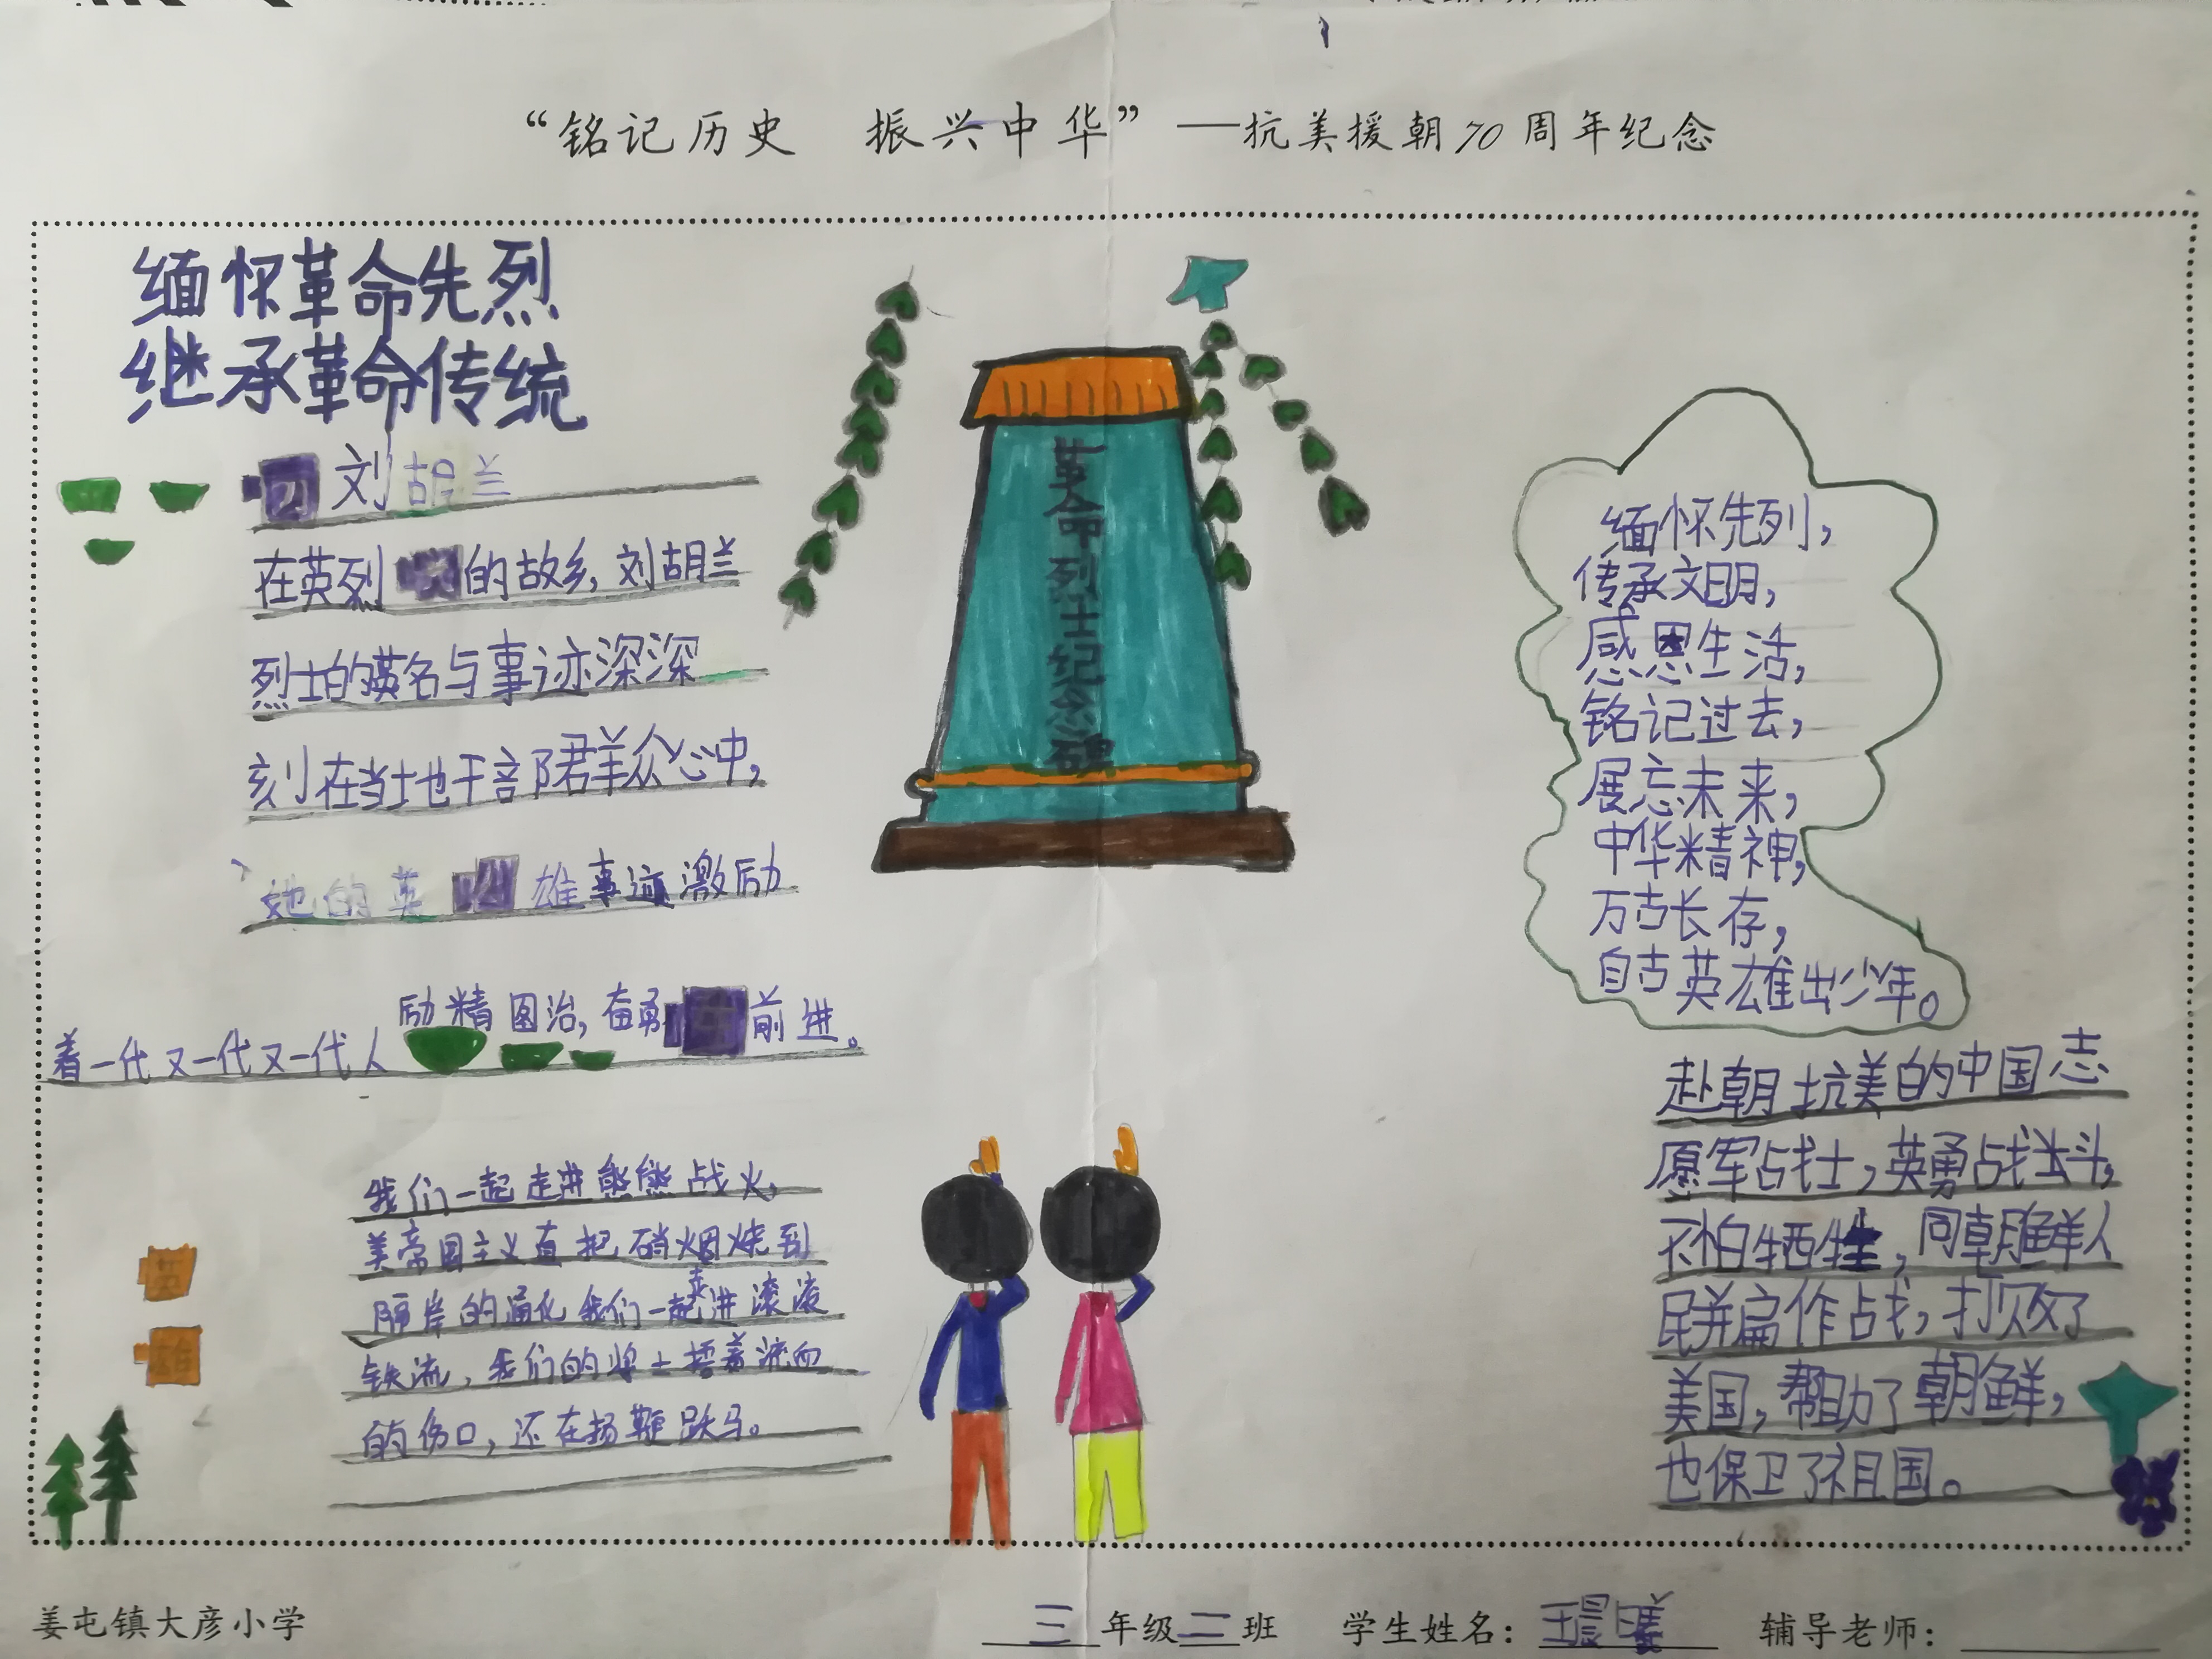 “铭记历史 振兴中华”——抗美援朝70周年纪念
缅怀革命先烈
继承革命传统
刘胡兰
在英烈的故乡,刘胡兰
烈士的英名与事迹深深
刻在当土也干部君羊众心中,
她的英雄事迹激励
着一代又一代又一代人励精图治,奋勇前进。
我们一起走进熊熊战火,
美帝国主义直把硝烟烧到
隔岸的通化我们一起走进滚滚
铁流,我们的将士捂着流血
的伤口,还在扬鞭跃马。
英
雄
革命烈士纪念碑
缅怀先列,
传承文明,
感恩生活,
铭记过去,
展忘未来,
中华精神,
万古长存,
自古英雄出少年。
赴朝抗美的中国志
愿军战士,英勇战斗,
不怕牺牲,同朝鲜人
民并扁作战,打败了
美国,帮助了朝鲜,
也保卫了祖国。
姜屯镇大彦小学 三年级二班 学生姓名:王晨曦 辅导老师: